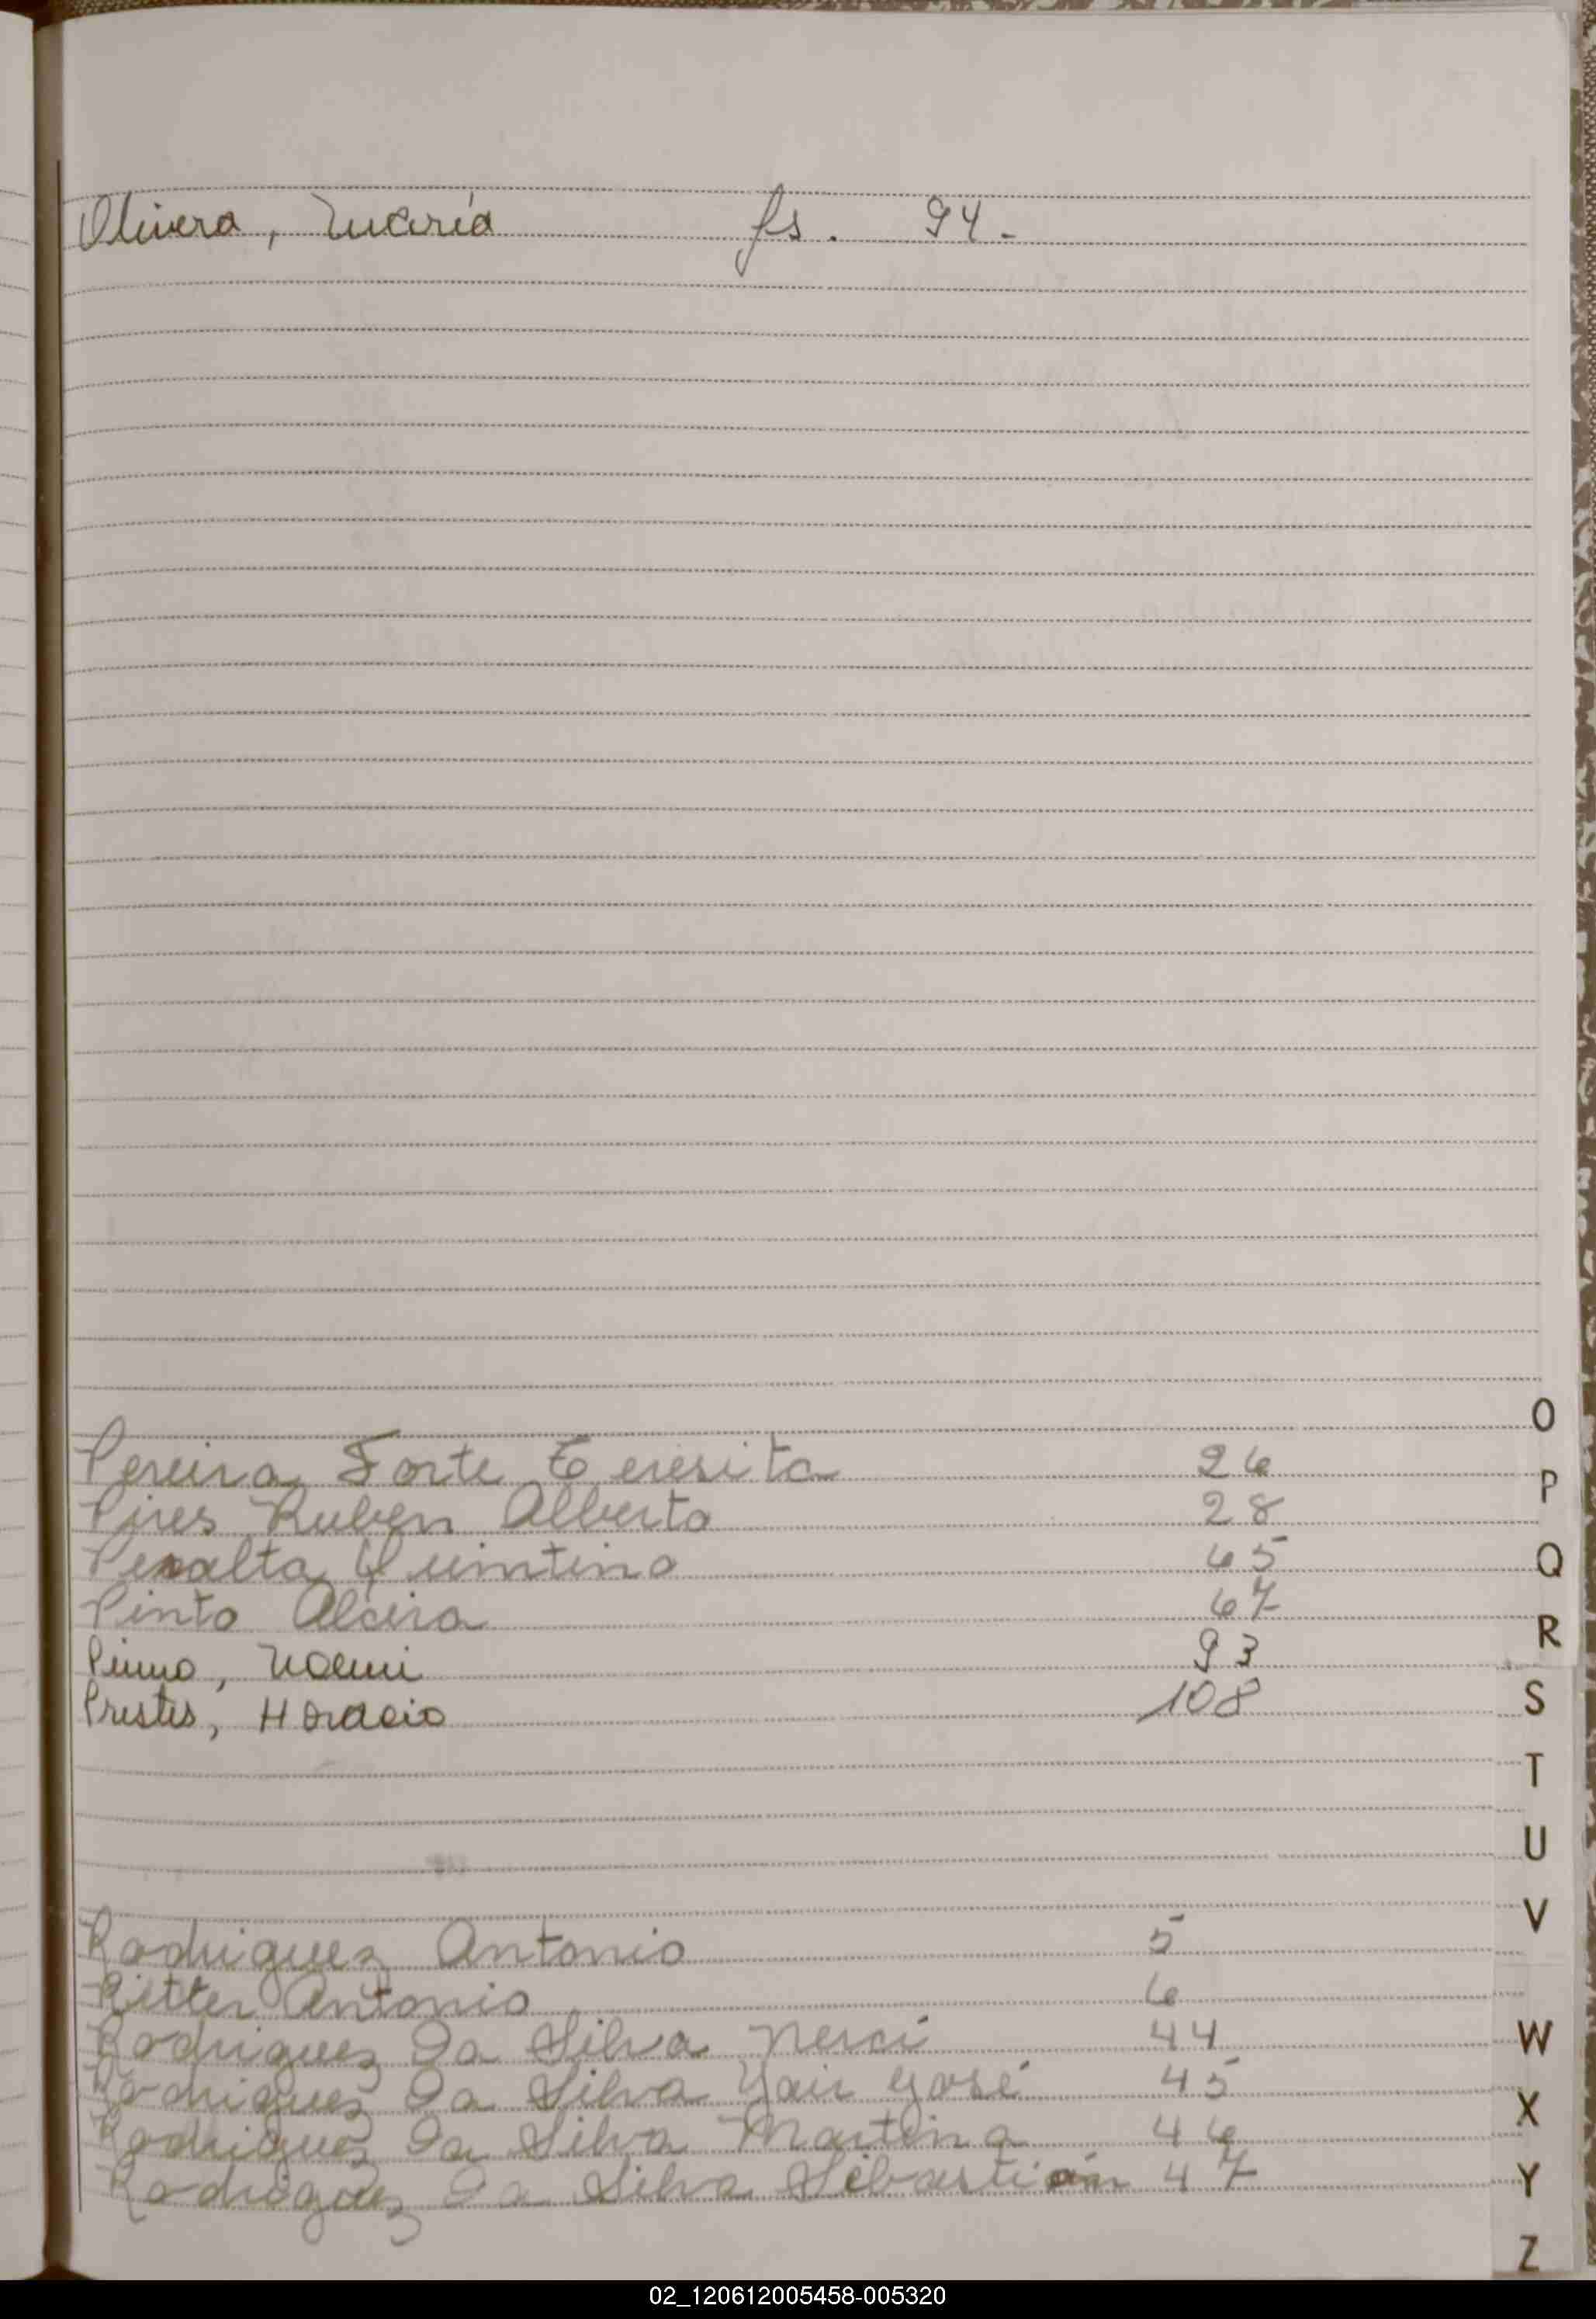 Olivera, María fs. 94.-
O
Pereira Forte Teresita 26
P
Pires Ruben Alberto 28
Peralta Quintino 65
Q
Pinto Alcira 67
R
Noemi 93
Prestes, Horacio 108
S
T
U
V
Rodriguez Antonio 5
Ritter Antonio 6
Rodriguez Da Silva Nerci 44
W
Rodriguez Da Silva Yair José 45
X
Rodriguez Da Silva Martina 46
Rodriguez Da Silva Sebastián 47
Y
Z
02_120612005458-005320